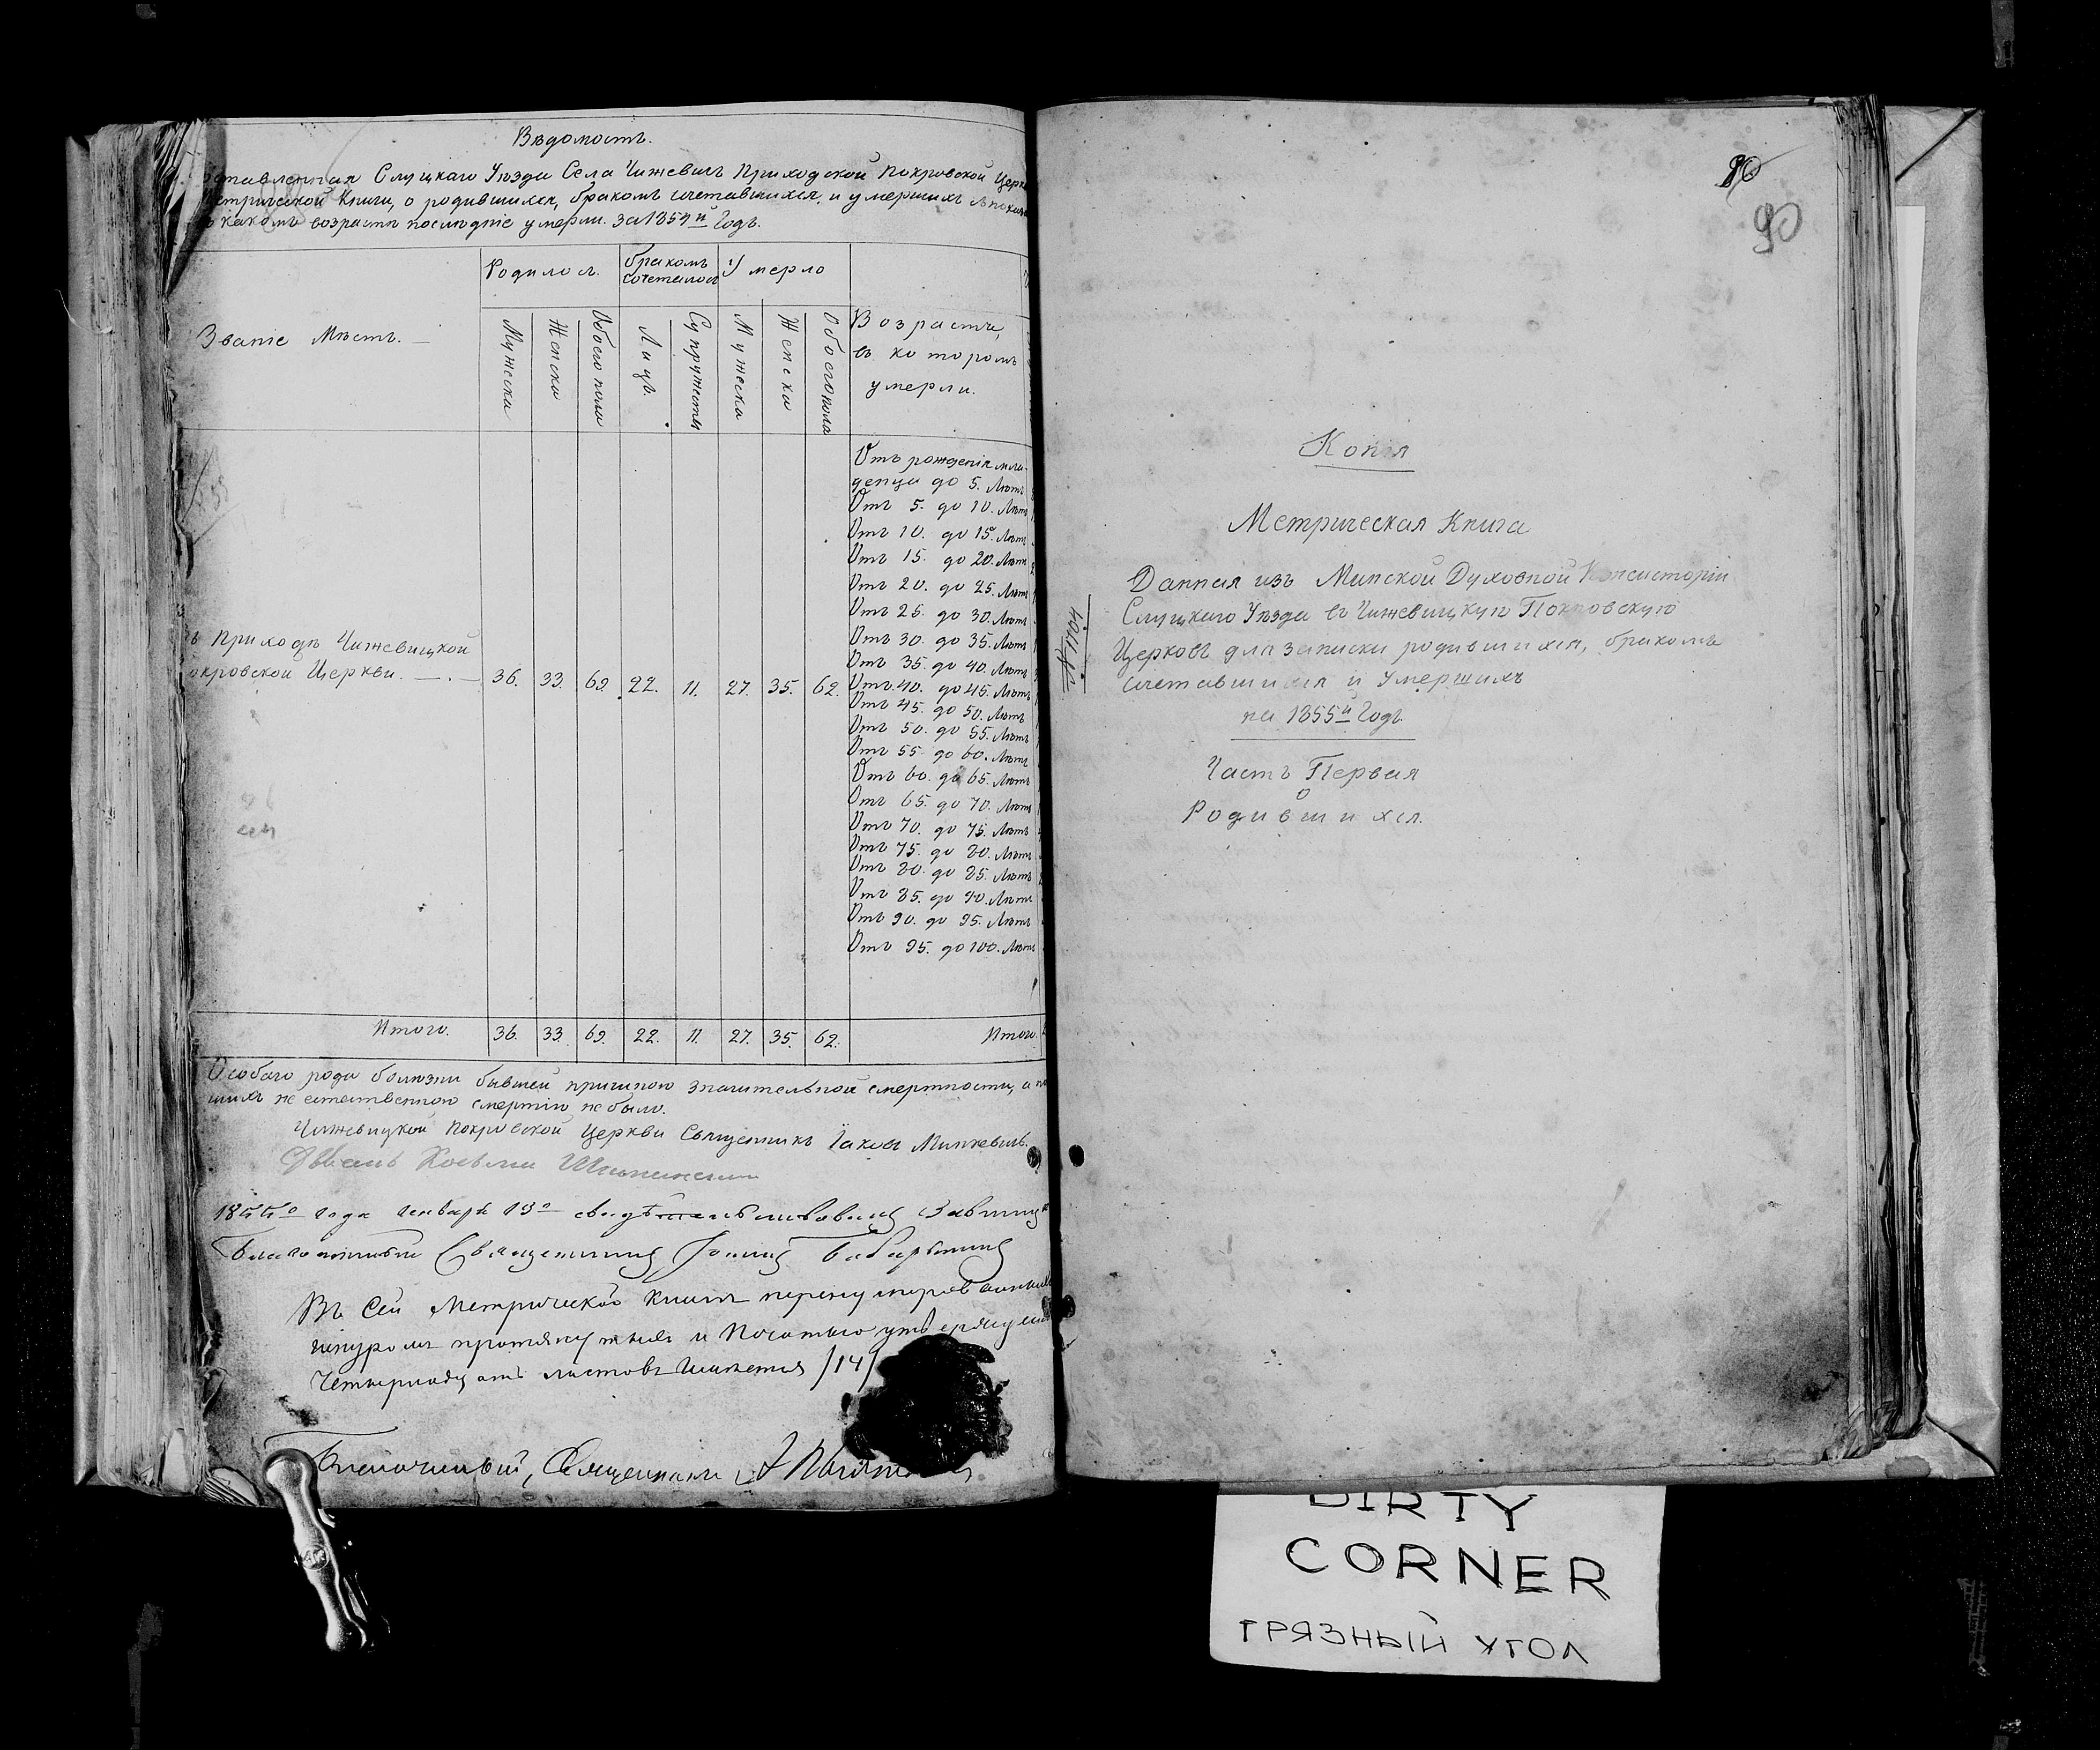 Вѣдомость.
ставленная Слуцкаго Уѣзда Села Чижевичь Приходской Покровской Церк
етрической Книги, о родившихся, бракомъ сочетавшихся, и умершихъ
какомъ возрастѣ послѣдніе умерли. За 1854й Годъ.
Званіе Мѣстъ. —
Родилось.
бракомъ сочеталось
Умерло
Мужеска
Женска
Обоего пола
Лицъ.
Супружествъ
Мужеска
Женска
Обоего пола
Возрастъ,
въ которомъ
умерли.
Отъ рожденія мла-
денца до 5. Лѣтъ
Отъ 5. до 10. Лѣтъ
Отъ 10. до 15. Лѣтъ
Отъ 15. до 20. Лѣтъ
Отъ 20. до 25. Лѣтъ
Отъ 25. до 30. Лѣтъ
Отъ 30. до 35. Лѣтъ
Отъ 35. до 40. Лѣтъ
Отъ 40. до 45. Лѣтъ
Отъ 45. до 50. Лѣтъ
Отъ 50. до 55. Лѣтъ
Отъ 55. до 60. Лѣтъ
Отъ 60. до 65. Лѣтъ
Отъ 65. до 70. Лѣтъ
Отъ 70. до 75. Лѣтъ
Отъ 75. до 80. Лѣтъ
Отъ 80. до 85. Лѣтъ
Отъ 85. до 90. Лѣтъ
Отъ 90. до 95. Лѣтъ
Отъ 95. до 100. Лѣтъ
ъ Приходѣ Чижевицкой
окровской Церкви. — . — 36. 33. 69. 22. 11. 27. 35. 62.
Итого. 36. 33. 69. 22. 11. 27. 35. 62. Итого.
Особаго рода болѣзни бывшей причиною значительной смертности, а
шихъ не естественною смертію не было.
Чижевицкой Покровской Церкви Священникъ Іаковъ Минкевичъ.
1855го года Января 13го
Благочинный Священникъ
Въ сей Метрической Книгѣ перенумерованныхъ
шнуромъ протянутыхъ и Печатью
Четырнадцать листовъ /14/
Благочинный, Священникъ
90
Копія
Метрическая Книга
Данная изъ Минской Духовной Консисторіи
Слуцкаго Уѣзда въ Чижевицкую Покровскую
Церковь для записки родившихся, бракомъ
сочетавшихся и Умершихъ
на 1855й Годъ.
Часть Первая
О
Родившихся.
DIRTY
CORNER
ГРЯЗНЫЙ УГОЛ